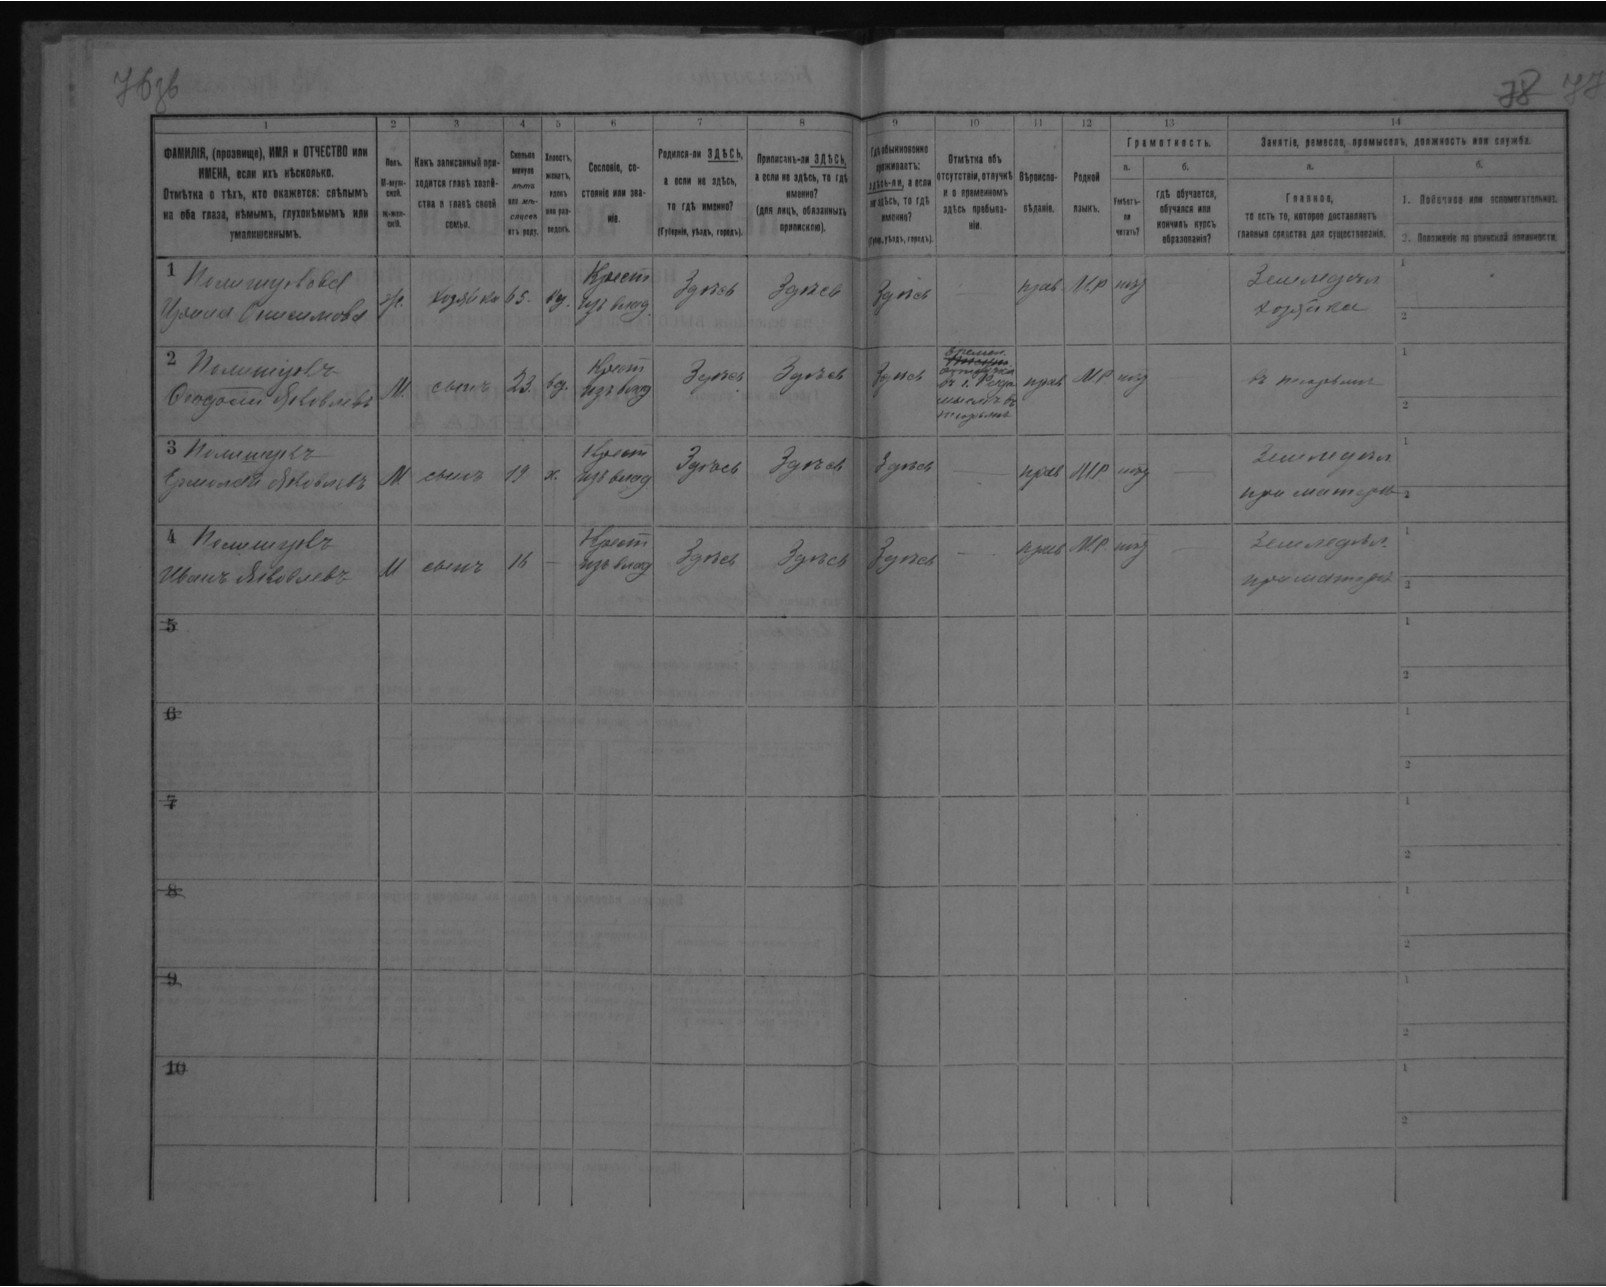 76зв
78 77
1 2 3 4 5 6 7 8 9 10 11 12 13 14
ФАМИЛІЯ, (прозвище), ИМЯ и ОТЧЕСТВО или
ИМЕНА, если ихъ нѣсколько.
Отмѣтка о тѣхъ, кто окажется: слѣпымъ
на оба глаза, нѣмымъ, глухонѣмымъ или
умалишеннымъ.
Полъ.
М-муж-
ской.
Ж-жен-
скій.
Какъ записанный при-
ходится главѣ хозяй-
ства и главѣ своей
семьи.
Сколько
минуло
лѣтъ
или мѣ-
сяцевъ
отъ роду.
Холостъ,
женатъ,
вдовъ
или раз-
веденъ.
Сословіе, со-
стояніе или зва-
ніе.
Родился-ли ЗДѢСЬ,
а если не здѣсь,
то гдѣ именно?
(Губернія, уѣздъ, городъ).
Приписанъ-ли ЗДѢСЬ,
а если не здѣсь, то гдѣ
именно?
(для лицъ, обязанныхъ
припискою).
Гдѣ обыкновенно
проживаетъ:
здѣсь-ли, а если
не здѣсь, то гдѣ
именно?
(Губ., уѣздъ, городъ).
Отмѣтка объ
отсутствіи, отлучкѣ
и о временномъ
здѣсь пребыва-
ніи.
Вѣроиспо-
вѣданіе.
Родной
языкъ.
Грамотность.
а. б.
Умѣетъ-
ли
читать?
гдѣ обучается,
обучался или
кончилъ курсъ
образованія?
Занятіе, ремесло, промыселъ, должность или служба.
а. б.
Главное,
то есть то, которое доставляетъ
главныя средства для существованія.
1. Побочное или вспомогательное.
2. Положеніе по воинской повинности.
1 Полищукова
Онисимова
ж. хозяйка 65. вд. Крест
изъ влад. Здѣсь Здѣсь Здѣсь — прав М.Р нѣт
Земледѣл
хозяйка
1
2
2 Полищукъ
Яковлевъ
М. сынъ 23. вд. Крест
изъ влад Здѣсь Здѣсь Здѣсь
времен.
отлучка
прав М.Р нѣт
въ тюрьмѣ
1
2
3 Полищукъ
Ермолай Яковлевъ
М. сынъ 19 х. Крест
изъ влад Здѣсь Здѣсь Здѣсь — прав М.Р нѣт —
Земледѣл
при матери
1
2
4 Полищукъ
Иванъ Яковлевъ
М сынъ 16 — Крест
изъ влад Здѣсь Здѣсь Здѣсь — прав М.Р. нѣт —
Земледѣл.
при матери
1
2
5
1
2
6
1
2
7
1
2
8
1
2
9
1
2
10
1
2